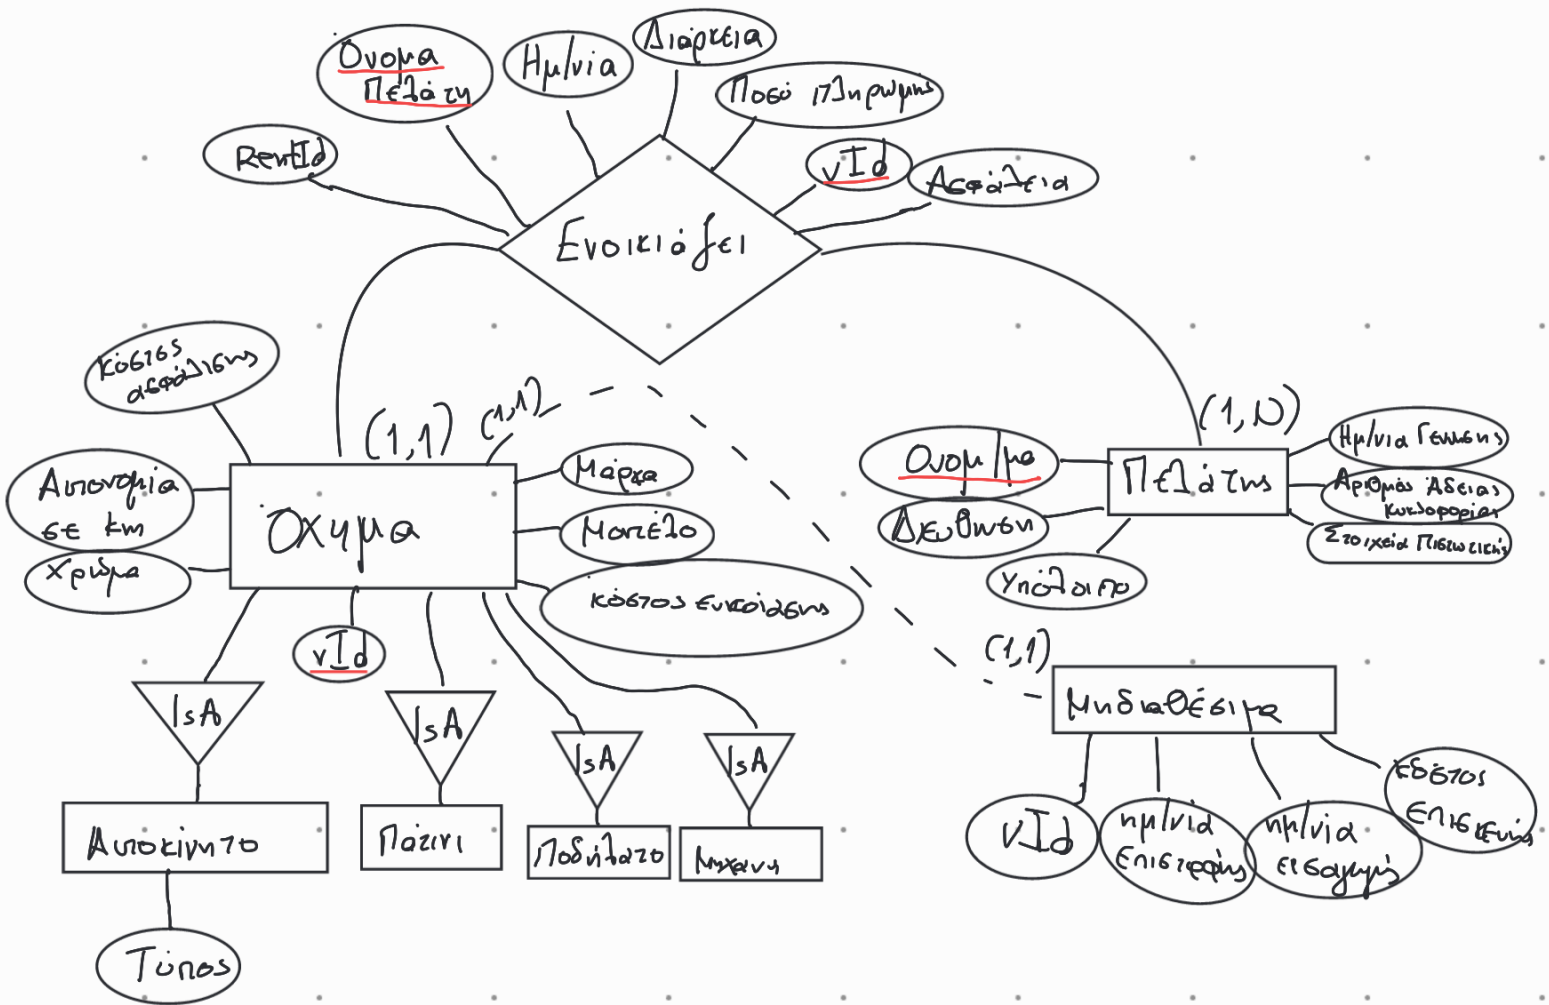 Όνομα
Πελάτη
Ημ/νία
Διάρκεια
Ποσό πληρωμής
RentId
vId
Ασφάλεια
Ενοικιάζει
κόστος
ασφάλισης
(1,1)
(1,1)
(1,N)
Αυτονομία
σε km
Χρώμα
Όχημα
Μάρκα
Μοντέλο
κόστος ενικοίασης
vId
Ονομ/μα
Διευθηνση
Υπόλοιπο
Πελάτης
Ημ/νια Γεννησης
Αριθμός Άδειας
κυκλοφορίας
Στοιχεία Πιστωτικής
(1,1)
Μη διαθέσιμα
IsA
IsA
IsA
IsA
Αυτοκίνητο
Πατίνι
Ποδήλατο
Μηχανη
vId
ημ/νία
επιστροφής
ημ/νία
εισαγωγής
κόστος
επισκευής
Τύπος